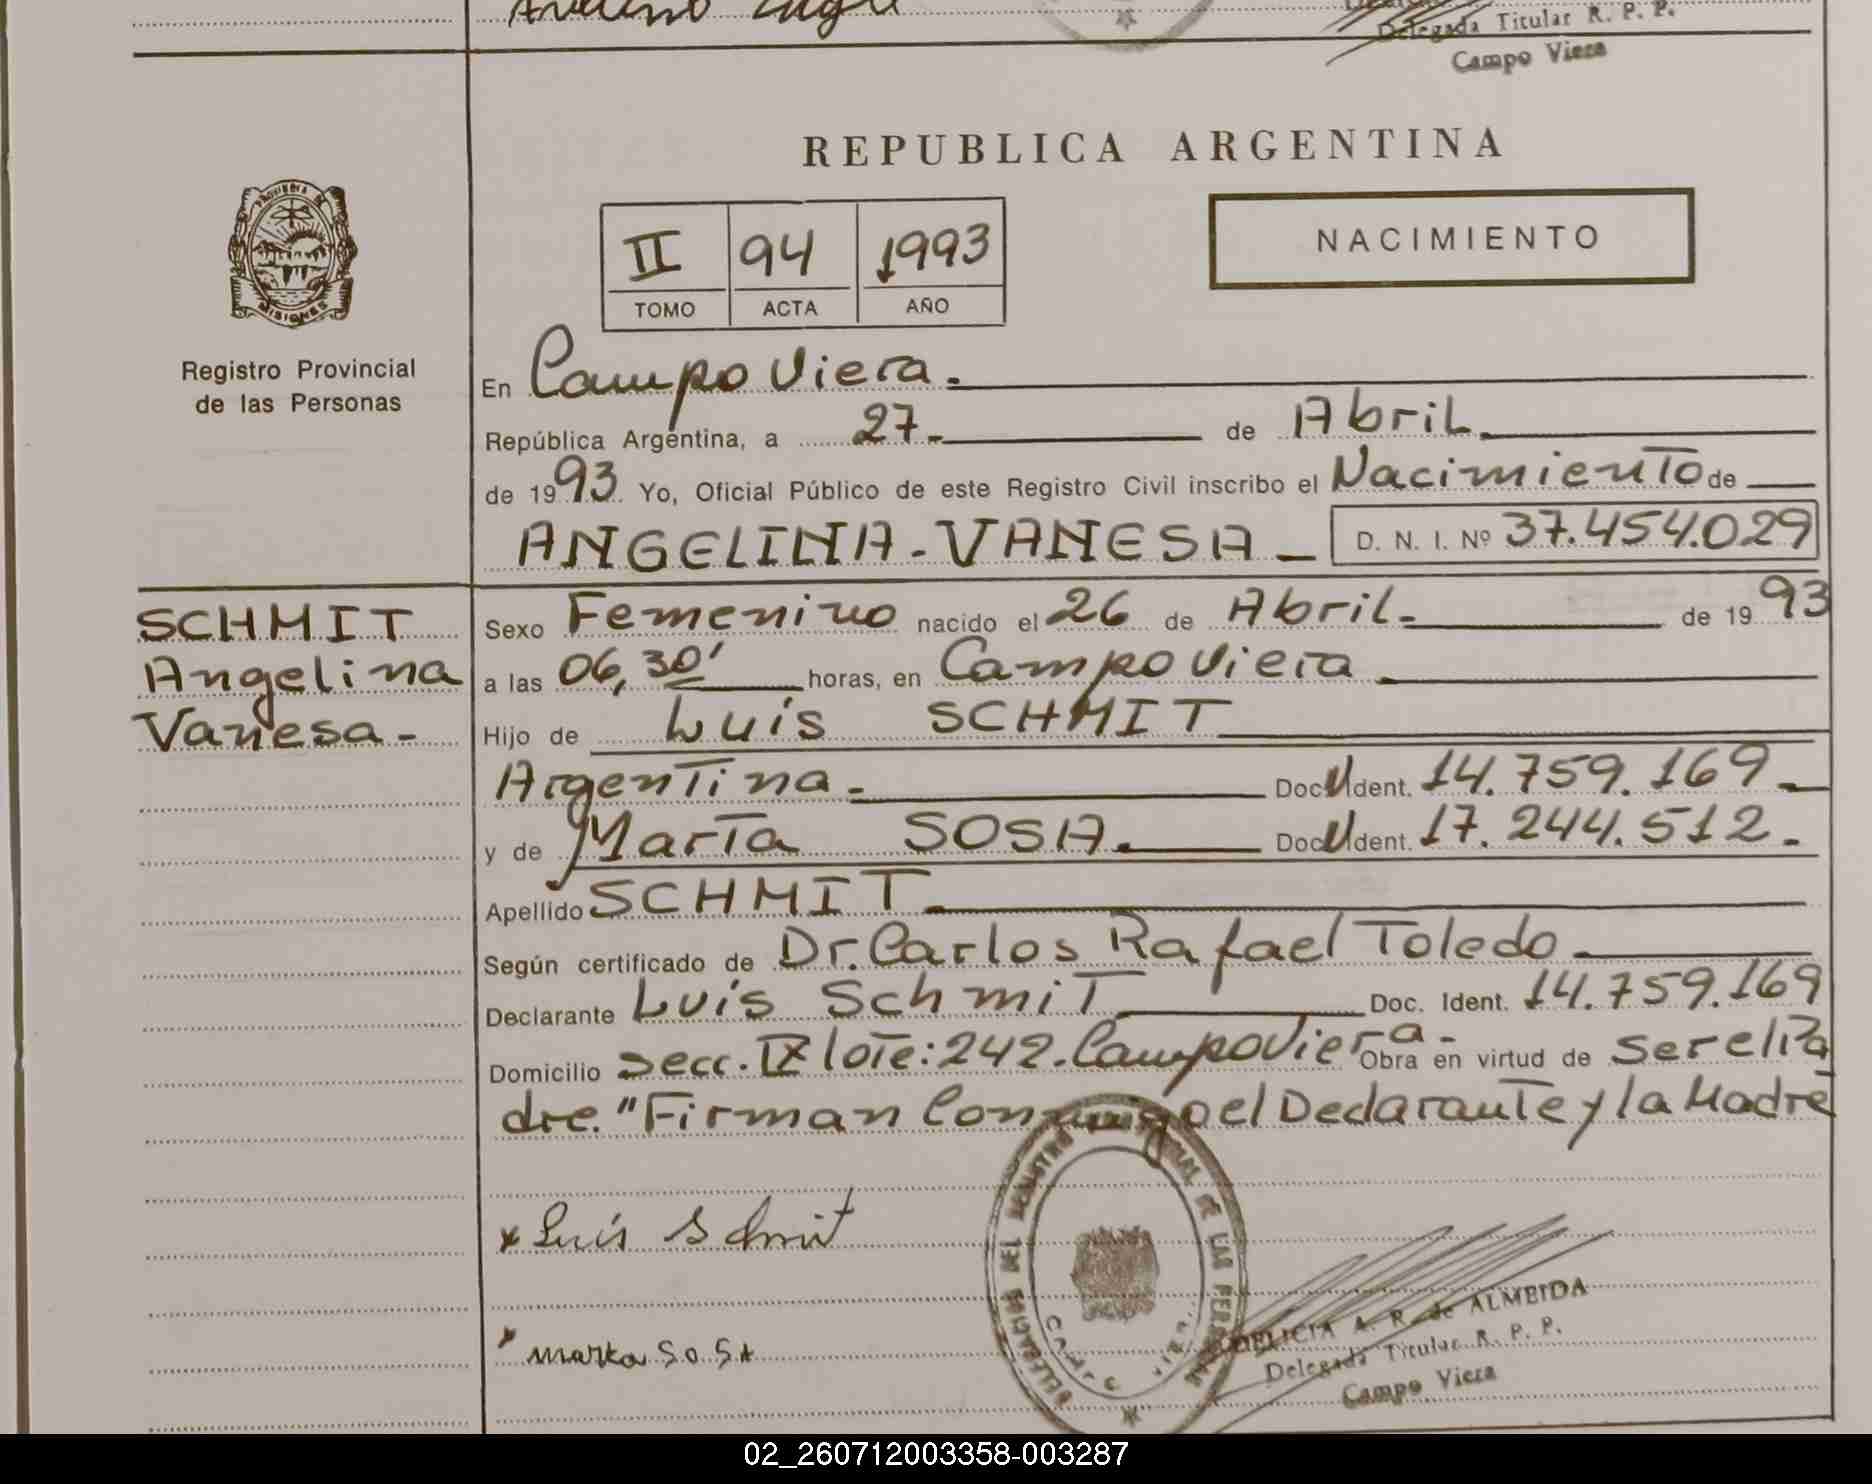 Delegada Titular R. P. P.
Campo Viera
REPUBLICA ARGENTINA
MISIONES
Registro Provincial
de las Personas
II 94 1993
TOMO ACTA AÑO
NACIMIENTO
En Campo Viera.
República Argentina, a 27 de Abril
de 1993 Yo, Oficial Público de este Registro Civil inscribo el Nacimiento de
ANGELINA - VANESA D. N. I. Nº 37.454.029
SCHMIT
Angelina
Vanesa-
Sexo Femenino nacido el 26 de Abril. de 1993
a las 06,30' horas, en Campo Viera
Hijo de Luis SCHMIT
Argentina. Doc U Ident. 14.759.169
y de Marta SOSA. Doc U Ident. 17.244.512.
Apellido SCHMIT
Según certificado de Dr. Carlos Rafael Toledo
Declarante Luis Schmit Doc. Ident. 14.759.169
Domicilio Secc. IX lote: 242. Campo Viera. Obra en virtud de ser el Pa
dre. "Firman Conmigo el Declarante y la Madre
Luis Schmit
Marta SoSA
DELEGACION DEL REGISTRO PROVINCIAL DE LAS PERSONAS
CAMPO VIERA
DELICIA A. R. de ALMEIDA
Delegada Titular R. P. P.
Campo Viera
02_260712003358-003287